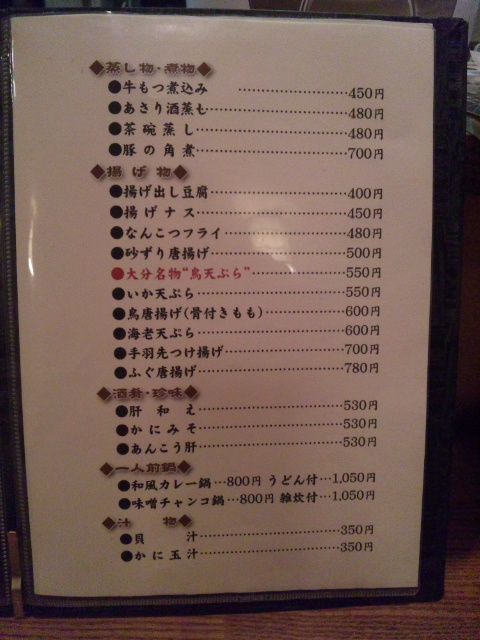 ◆蒸し物・煮物◆
●牛もつ煮込み ………………450円
●あさり酒蒸む………………480円
●茶碗蒸し………………480円
●豚の角煮………………700円
◆揚げ物◆
●揚げ出し豆腐………………400円
●揚げナス………………450円
●なんこつフライ………………480円
●砂ずり唐揚げ………………500円
●大分名物"鳥天ぷら"………………550円
●いか天ぷら………………550円
●鳥唐揚げ(骨付きもも)………………600円
●海老天ぷら………………600円
●手羽先つけ揚げ………………700円
●ふぐ唐揚げ………………780円
◆酒肴・珍味◆
●肝和え………………530円
●かにみそ………………530円
●あんこう肝………………530円
◆一人前鍋◆
●和風カレー鍋…800円 うどん付…1,050円
●味噌チャンコ鍋…800円 雑炊付…1,050円
◆汁物◆
●貝汁………………350円
●かに玉汁………………350円